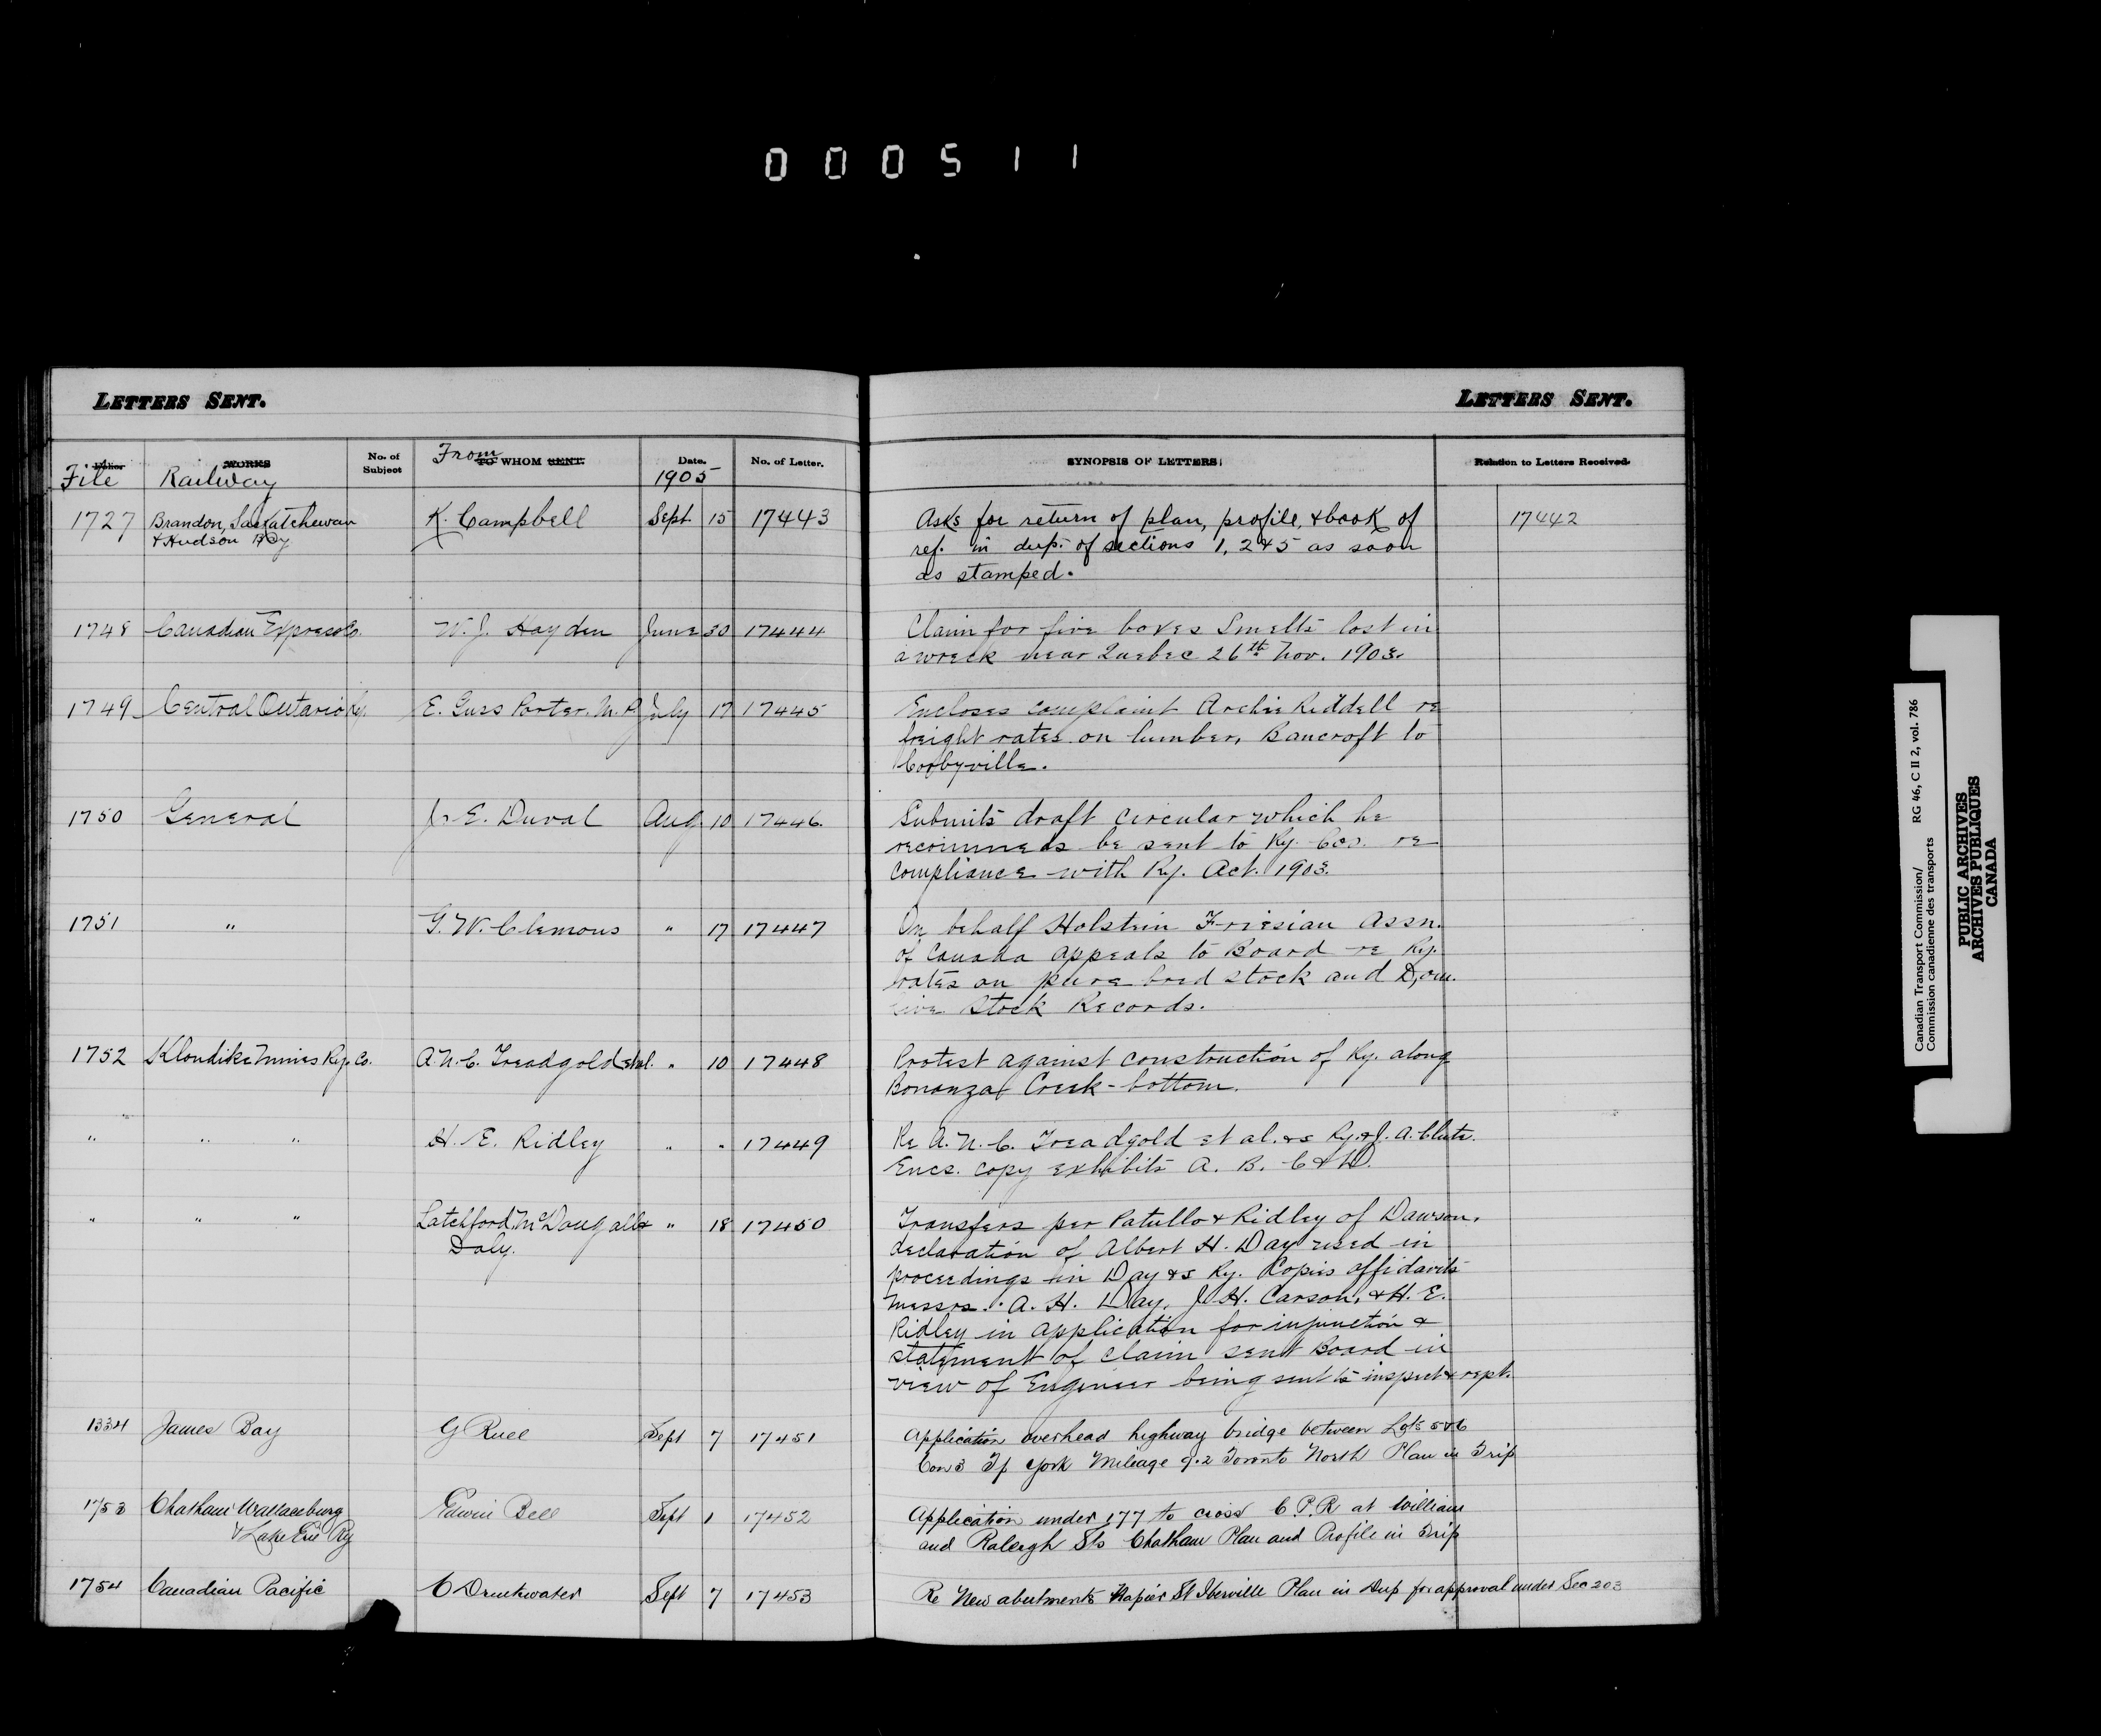 000511
LETTERS SENT.
LETTERS SENT.
File
WORKS
Railway
No. of
Subject
From
TO WHOM SENT.
Date.
1905
No. of Letter.
SYNOPSIS OF LETTERS
Relation to Letters Received.
1727 Brandon, Saskatchewan K. Campbell Sept 15 17443 Asks for return of plan, profile, & book of 17442
& Hudson Bay ref. in dup. of sections 1, 2 & 5 as soon
as stamped.
1748 Canadian Express Co. W. J. Hayden June 30 17444 Claim for five boxes Smelts lost in
a wreck near Quebec 26th Nov. 1903.
1749 Central Ontario Ry. E. Guss Porter, M.P. July 17 17445 Encloses complaint Archie Riddell re
freight rates on lumber, Bancroft to
Corbyville.
1750 General J. E. Duval Aug 10 17446 Submits draft circular which he
recommends be sent to Ry. Cos. re
compliance with Ry. Act. 1903.
1751 " G. W. Clemons " 17 17447 On behalf Holstein Friesian Assn.
of Canada appeals to Board re Ry.
rates on pure bred stock and Dom.
Live Stock Records.
1752 Klondike Mines Ry. Co. A. N. C. Treadgold et al. " 10 17448 Protest against construction of Ry. along
Bonanza Creek-bottom.
" " " H. E. Ridley " " 17449 Re A. N. C. Treadgold et al. vs Ry. & J. A. Clute.
Encs. copy exhibits A. B. C & D.
" " " Latchford, McDougall & " 18 17450 Transfers per Patullo & Ridley of Dawson,
Daly. declaration of Albert H. Day used in
proceedings in Day vs Ry. Copies affidavits
Messrs. A. H. Day, J. H. Carson, & H. E.
Ridley in application for injunction &
statement of claim sent Board in
view of Engineer being sent to inspect & rept.
1334 James Bay G Ruel Sept 7 17451 Application overhead highway bridge between Lots 5 & 6
Con 3 Tp York Mileage 9.2 Toronto North Plan in Trip
1753 Chatham Wallaceburg Edwin Bell Sept 1 17452 Application under 177 to cross C.P.R at William
& Lake Erie Ry and Raleigh Sts Chatham Plan and Profile in Trip
1754 Canadian Pacific C Drinkwater Sept 7 17453 Re New abutments Napier St Iberville Plan in Dup for approval under Sec 203
Canadian Transport Commission/ RG 46, C II 2, vol. 786
Commission canadienne des transports
PUBLIC ARCHIVES
ARCHIVES PUBLIQUES
CANADA